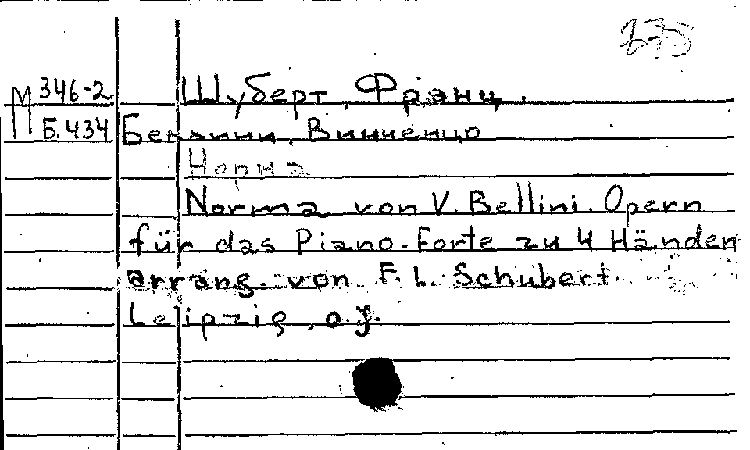 235
М 346-2 Шуберт, Франц.
Б.434 Беллини, Винченцо
Норма
Norma von V. Bellini. Opern
für das Piano-Forte zu 4 Händen
arrang. von F. L. Schubert.
Leipzig, o.J.